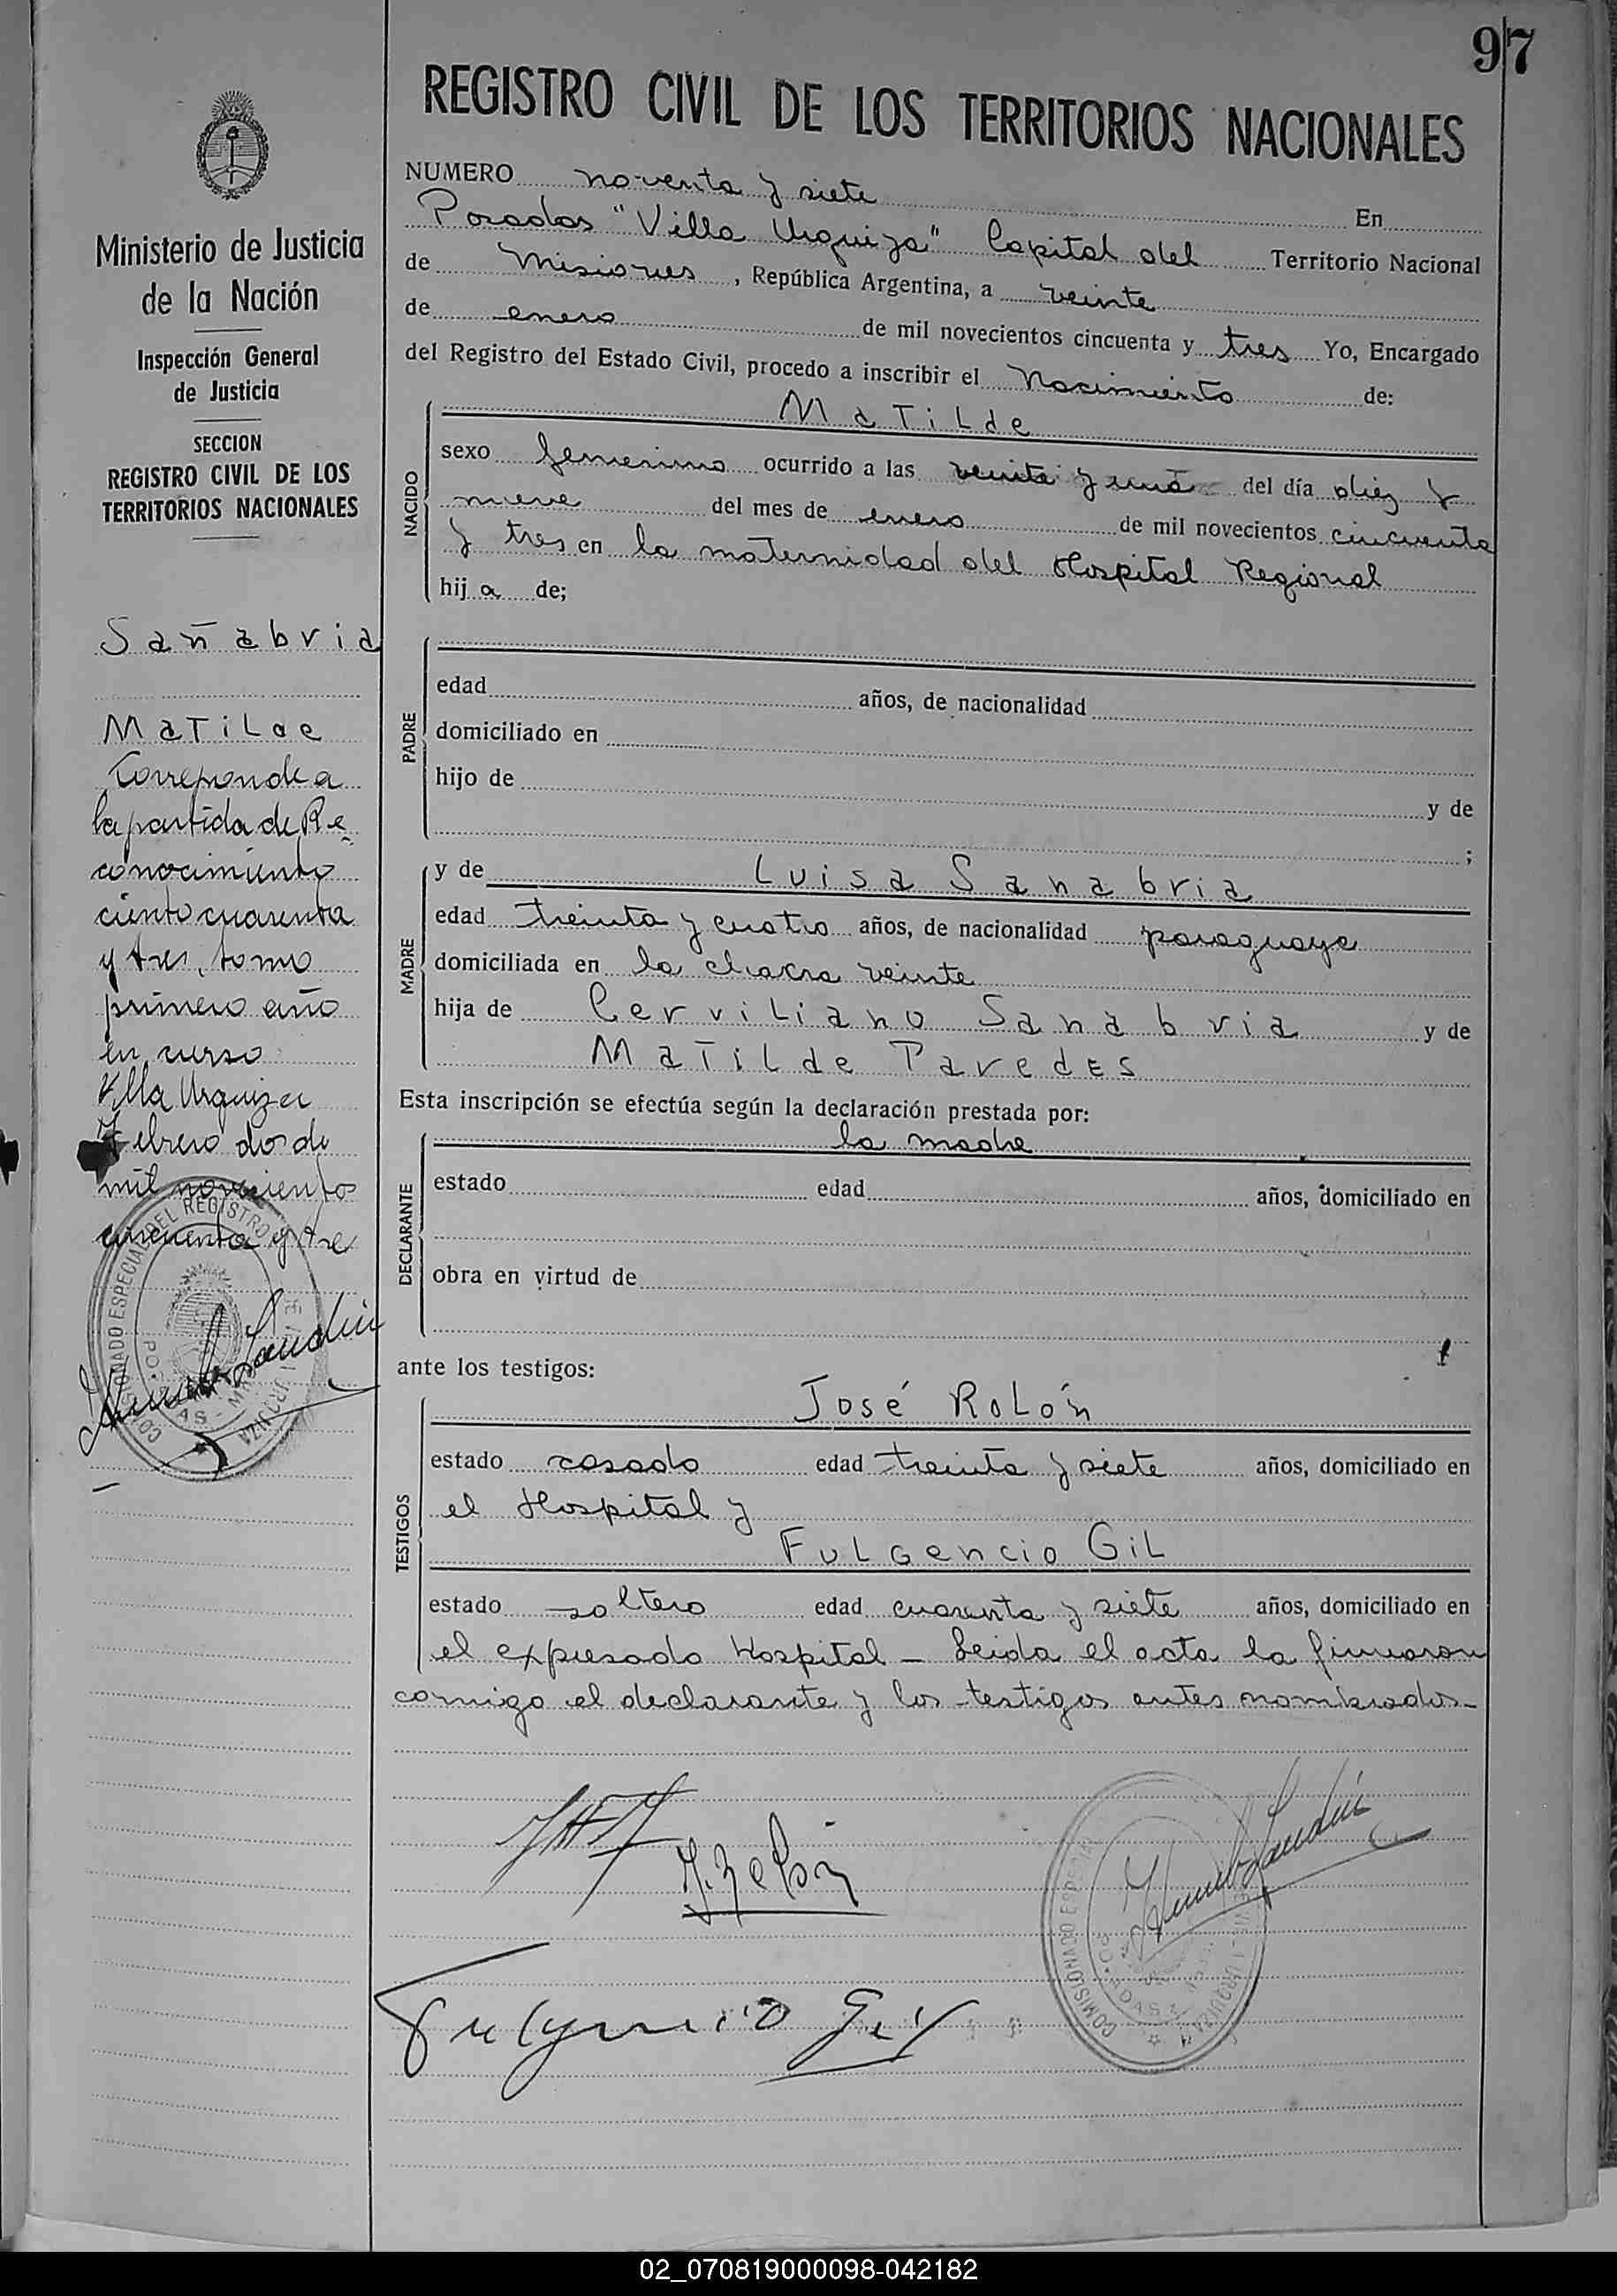 97
REGISTRO CIVIL DE LOS TERRITORIOS NACIONALES
Ministerio de Justicia
de la Nación
Inspección General
de Justicia
SECCION
REGISTRO CIVIL DE LOS
TERRITORIOS NACIONALES
Sañabria
Matilde
Correponde a
la partida de Re
conocimiento
ciento cuarenta
y tres, tomo
primero año
en curso
Villa Urquiza
Febrero dos de
mil novecientos
cincuenta y tre
NUMERO noventa y siete En
Posadas "Villa Urquiza" Capital del Territorio Nacional
de Misiones, República Argentina, a veinte
de enero de mil novecientos cincuenta y tres Yo, Encargado
del Registro del Estado Civil, procedo a inscribir el Nacimiento de:
MaTiLde
NACIDO
sexo femenino ocurrido a las veinte y una del día diez y
nueve del mes de enero de mil novecientos cincuenta
y tres en la maternidad del Hospital Regional
hija de;
PADRE
edad años, de nacionalidad
domiciliado en
hijo de y de
;
MADRE
y de Luisa Sanabria
edad treinta y cuatro años, de nacionalidad paraguaya
domiciliada en la chacra veinte
hija de Cerviliano Sanabria y de
Matilde Paredes
Esta inscripción se efectúa según la declaración prestada por:
la madre
DECLARANTE
estado edad años, domiciliado en
obra en virtud de
ante los testigos:
José Rolón
TESTIGOS
estado casado edad treinta y siete años, domiciliado en
el Hospital y
Fulgencio Gil
estado soltero edad cuarenta y siete años, domiciliado en
el expresado Hospital - Leida el acta la firmaron
conmigo el declarante y los testigos antes nombrados-
J. Rolón
Fulgencio Gil
COMISIONADO ESPECIAL DEL REGISTRO
COMISIONADO ESPECIAL
02_070819000098-042182